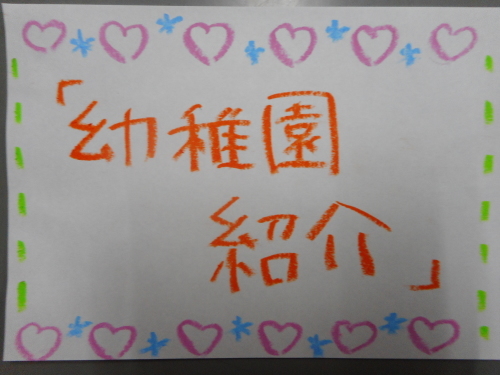 「幼稚園
紹介」